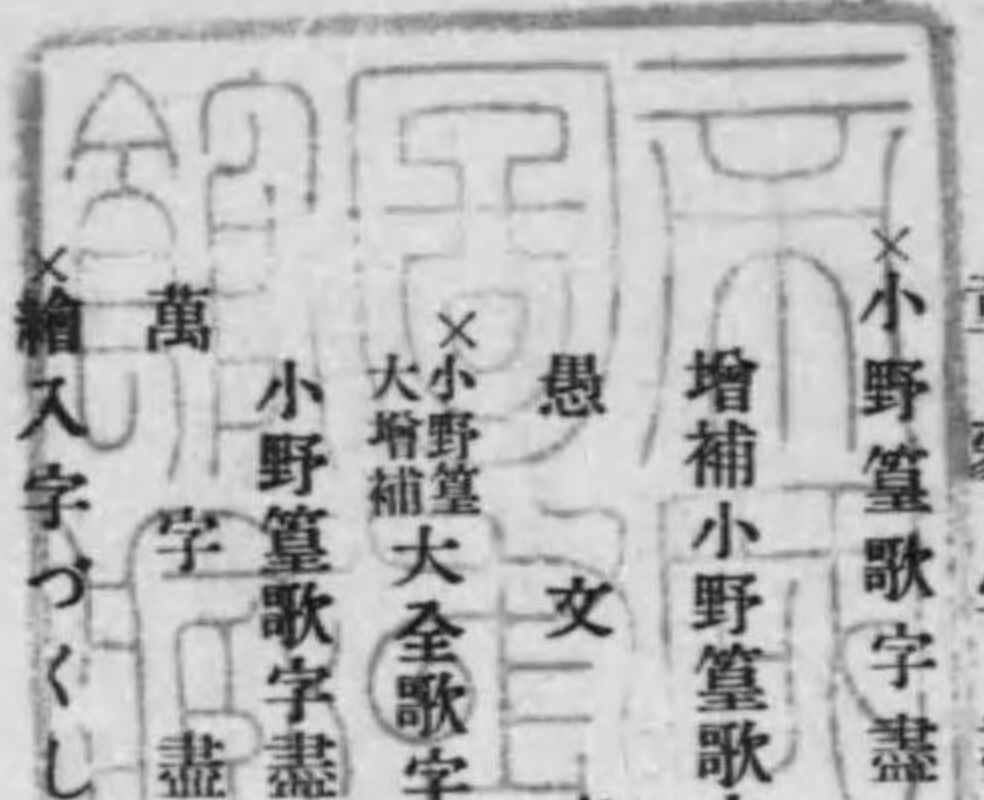 ×小野篁歌字盡
增補小野篁歌
愚文
×小野篁大增補大全歌字
小野篁歌字盡
萬字盡
×繪入字づくし